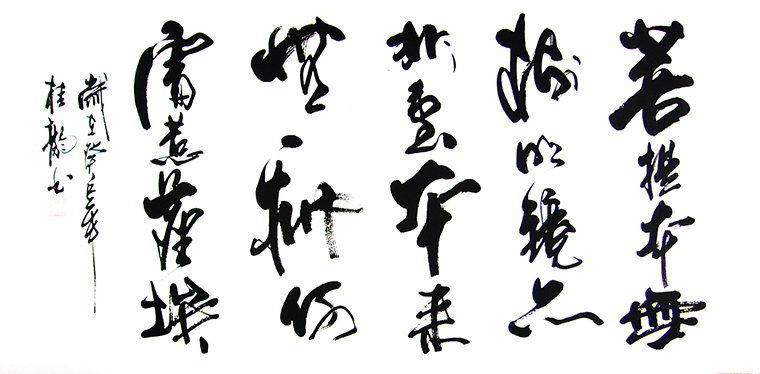 菩提本無
樹明鏡亦
非臺本来
無一物何
處惹塵埃
歲在癸巳年
桂龍书